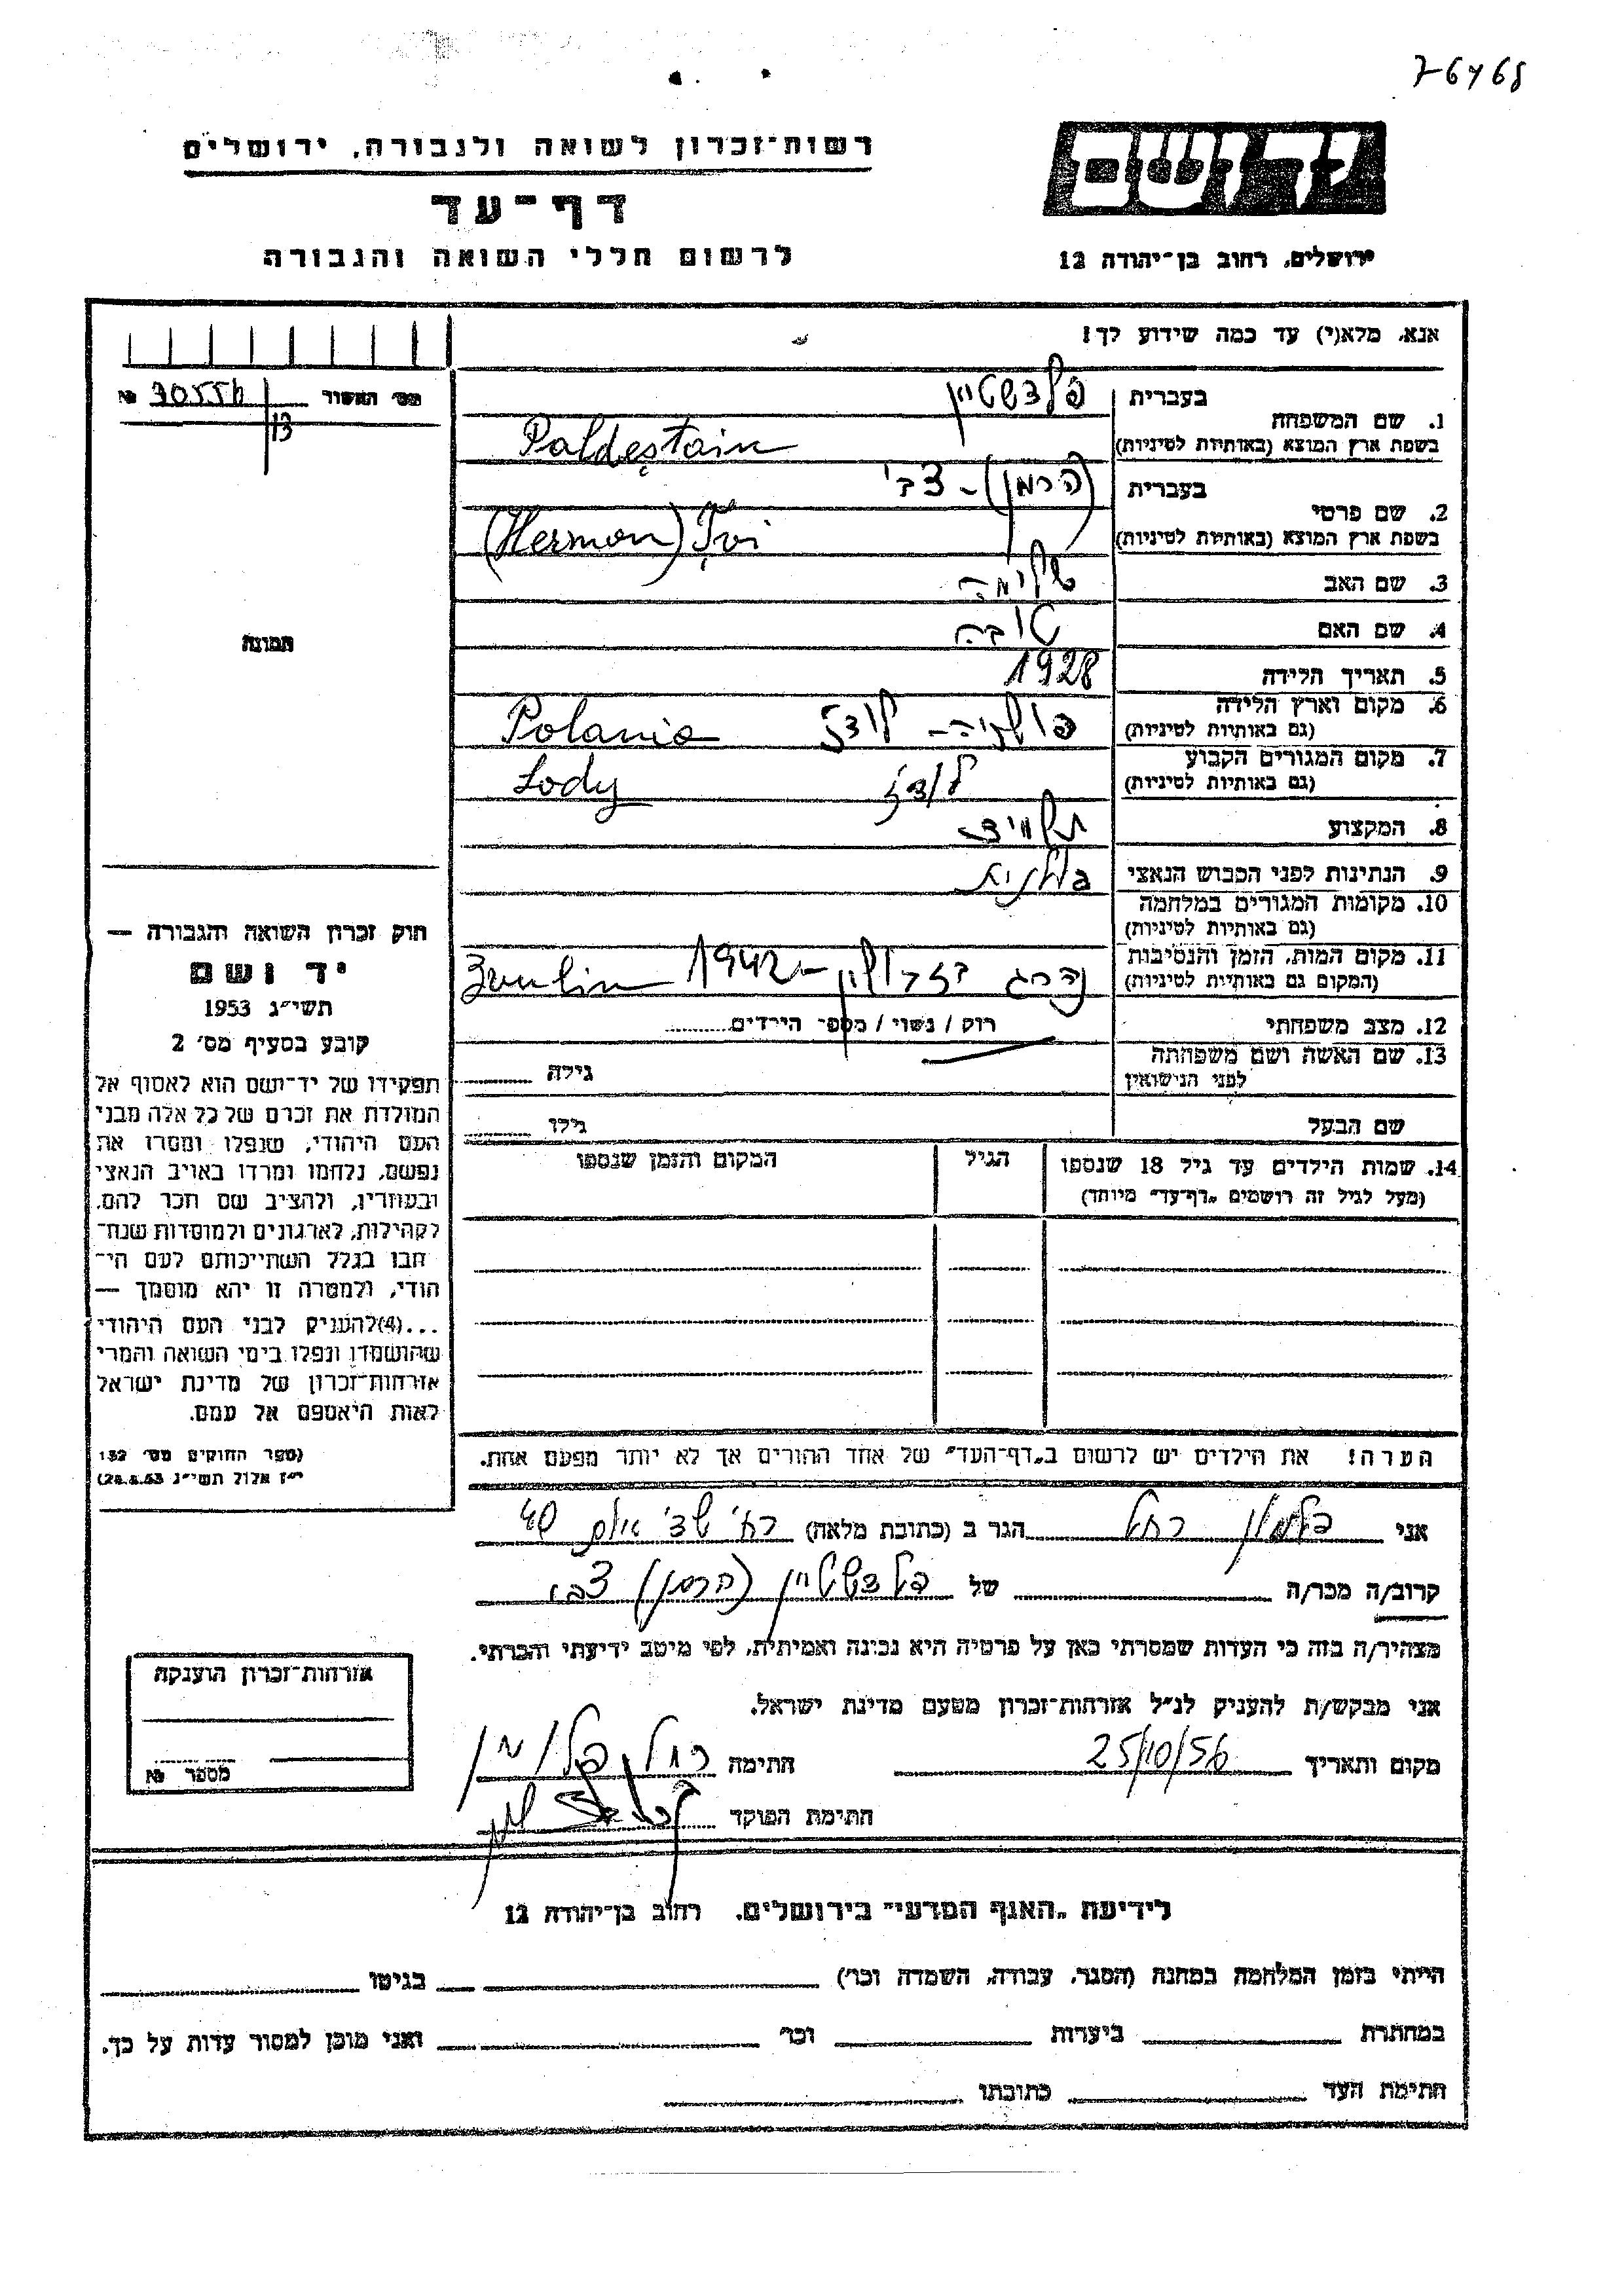 76468
רשות־זכרון לשואה ולגבורה, ירושלים
יד ושם
דף־עד
לרשום חללי השואה והגבורה
ירושלים, רחוב בן־יהודה 12
אנא, מלא(י) עד כמה שידוע לך!
מס׳ האשור
13
1. שם המשפחה
בעברית פלדשטיין
בשפת ארץ המוצא (באותיות לטיניות) Paldeștain
2. שם פרטי
בעברית (הרמן) - צבי
בשפת ארץ המוצא (באותיות לטיניות) (Hermon) Țvi
3. שם האב שלימה
4. שם האם טובה
5. תאריך הלידה 1928
6. מקום וארץ הלידה
(גם באותיות לטיניות) פולניה - לודז Polania
7. מקום המגורים הקבוע
(גם באותיות לטיניות) לודז Lody
8. המקצוע תלמיד
9. הנתינות לפני הכבוש הנאצי פולנית
10. מקומות המגורים במלחמה
(גם באותיות לטיניות)
11. מקום המות, הזמן והנסיבות
(המקום גם באותיות לטיניות) נהרג 1942
12. מצב משפחתי רוק / נשוי / מספר הילדים
13. שם האשה ושם משפחתה
לפני הנישואין גילה
שם הבעל גילו
14. שמות הילדים עד גיל 18 שנספו הגיל המקום והזמן שנספו
(מעל לגיל זה רושמים „דף־עד״ מיוחד)
הערה! את הילדים יש לרשום ב„דף־העד״ של אחד ההורים אך לא יותר מפעם אחת.
תמונה
חוק זכרון השואה והגבורה —
יד ושם
תשי״ג 1953
קובע בסעיף מס׳ 2
תפקידו של יד־ושם הוא לאסוף אל
המולדת את זכרם של כל אלה מבני
העם היהודי, שנפלו ומסרו את
נפשם, נלחמו ומרדו באויב הנאצי
ובעוזריו, ולהציב שם וזכר להם,
לקהילות, לארגונים ולמוסדות שנח־
רבו בגלל השתייכותם לעם הי־
הודי, ולמטרה זו יהא מוסמך —
...(4) להעניק לבני העם היהודי
שהושמדו ונפלו בימי השואה והמרי
אזרחות־זכרון של מדינת ישראל
לאות היאספם אל עמם.
(ספר החוקים מס׳ 132
י״ז אלול תשי״ג 28.8.53)
אני רחל הגר ב (כתובת מלאה)
קרוב/ה מכר/ה של פלדשטיין (הרמן) צבי
מצהיר/ה בזה כי העדות שמסרתי כאן על פרטיה היא נכונה ואמיתית, לפי מיטב ידיעתי והכרתי.
אני מבקש/ת להעניק לנ״ל אזרחות־זכרון מטעם מדינת ישראל.
מקום ותאריך 25/10/56 חתימה רחל
חתימת הפוקד
אזרחות־זכרון הוענקה
מספר №
לידיעת „האגף המדעי״ בירושלים, רחוב בן־יהודה 12
הייתי בזמן המלחמה במחנה (הסגר, עבודה, השמדה וכו׳) בגיטו
במחתרת ביערות וכו׳ ואני מוכן למסור עדות על כך.
חתימת העד כתובתו